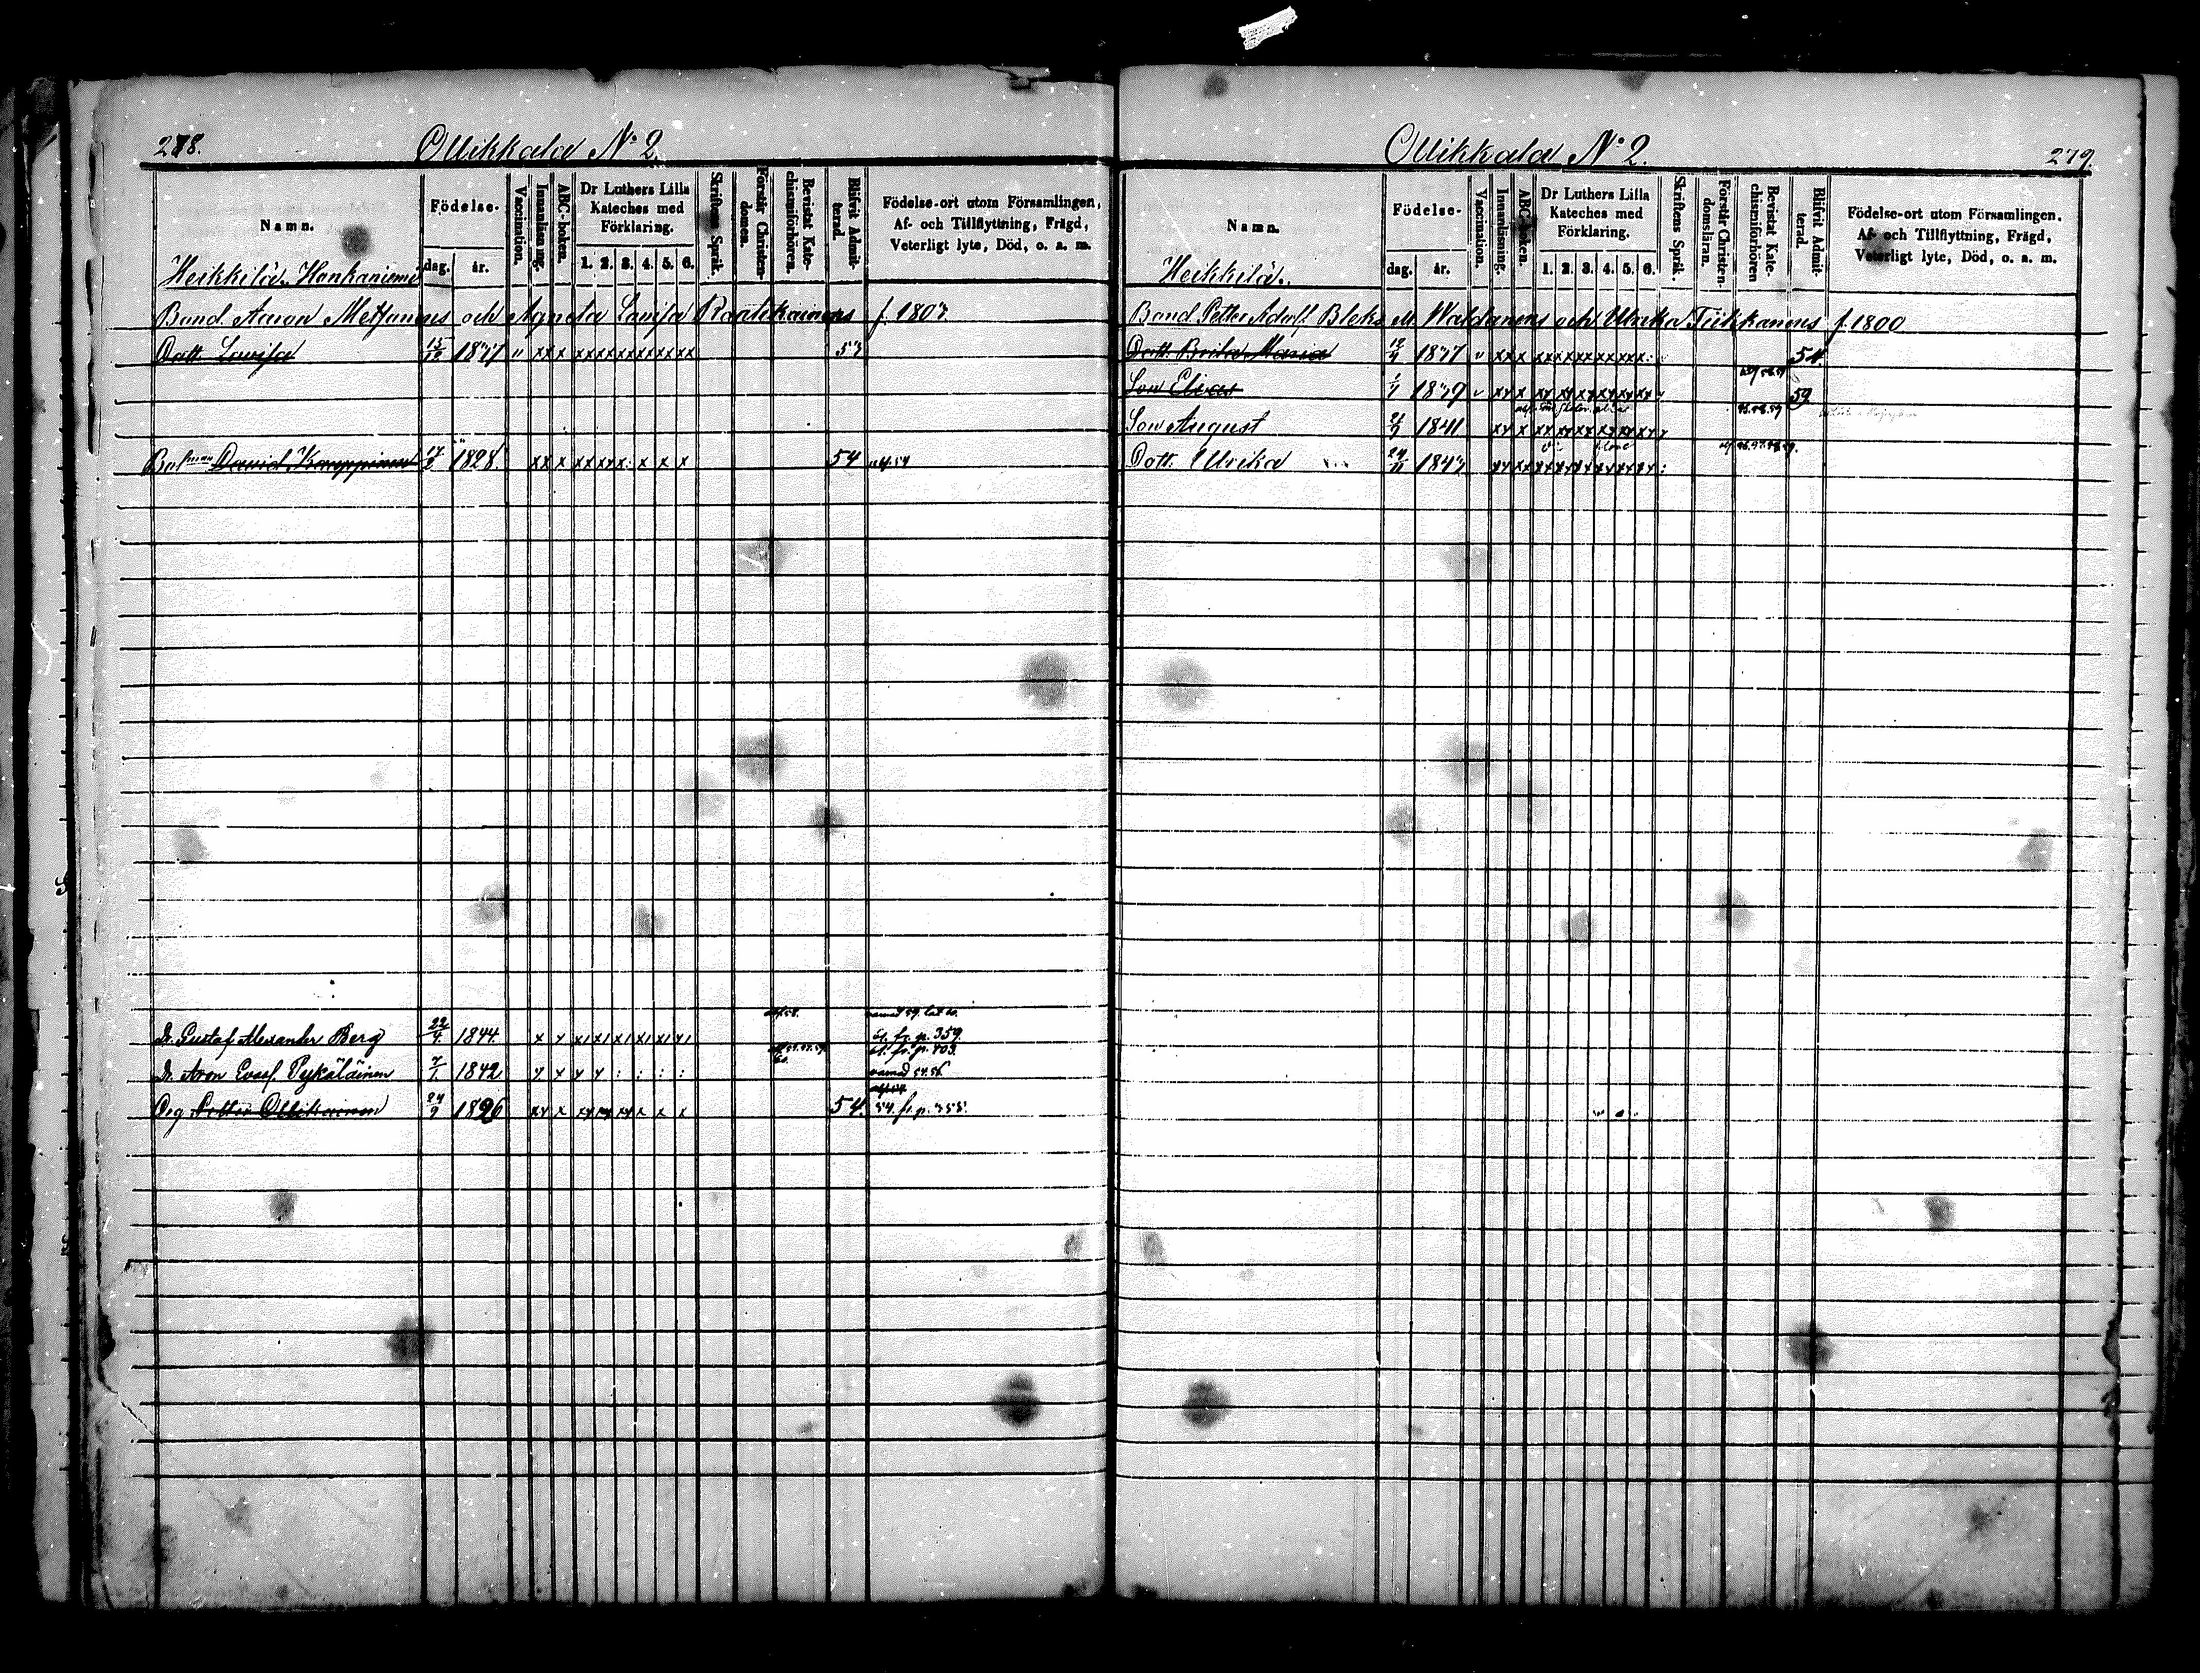 278. Ollikkala No 2
Namn. Födelse- dag. år. Vaccination. Innanläsning. ABC-boken. Dr Luthers Lilla Kateches med Förklaring. 1. 2. 3. 4. 5. 6. Skriftens Språk. Förstår Christendomen. Bevistat Katechismiförhören. Blifvit Admitterad. Födelse-ort utom Församlingen, Af- och Tillflyttning, Frägd, Veterligt lyte, Död, o. a. m.
Heikkilä. Hankaniemi
Bond. Aaron Metsänens och Agneta Lovisa Rautikainens f. 1807
Dott. Lovisa 15/12 1837 v xx x xx xx xx xx xx xx 53
Bol man David Kamppinen 17/3 1828. xx x xx xx x: x x x 54
alf. 58. 59.
Dr. Gustaf Alexander Berg 22/4 1844 x x x x x x x x 61. fr. p. 359.
61. fr. p. 403.
Dr. Aron Evasf. Pykäläinen 7/1 1842 x x x x : : : :
Drg Petter Ollikainen 24/9 1826 xx x xx xx xx x x x 54. 54. fr. p. 358.
Ollikkala No 2. 279.
Namn. Födelse- dag. år. Vaccination. Innanläsning. ABC-boken. Dr Luthers Lilla Kateches med Förklaring. 1. 2. 3. 4. 5. 6. Skriftens Språk. Förstår Christendomsläran. Bevistat Katechismiförhören Blifvit Admitterad. Födelse-ort utom Församlingen. Af- och Tillflyttning, Frägd, Veterligt lyte, Död, o. a. m.
Heikkilä.
Bond. Petter Adolf Bloks M. Waldanens och Ulrika Tiihkanens f. 1800
Dott. Brita Maria 12/9 1837 v xx x xx xx xx xx xx x: 54.
Son Elias 1/7 1839 v xx x xx xx xx xx xx xx 59
Son August 21/9 1841 xx x xx xx xx xx xx xx
Dott. Ulrika 24/11 1843 xx xx xx xx xx xx xx xx :